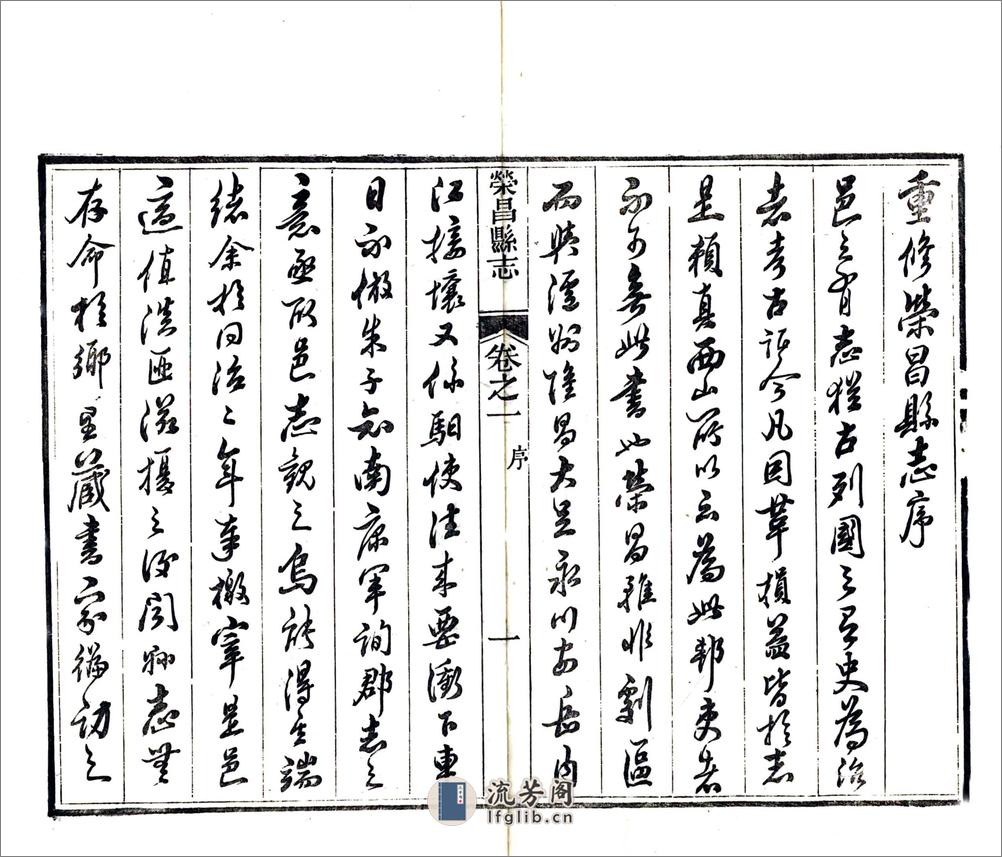 重修榮昌縣志序
邑之有志猶古列國之有史為治
者考古証今凡因革損益皆於志
是賴真西山所以云為此邦吏者
不可無此書也榮昌雖非劇區
而與瀘州隆昌大足永川安岳內
江接壤又係馹使往來要衝下車
榮昌縣志 卷之一 序 一
日亦倣朱子知南康軍詢郡志之
意亟取邑志觀之烏能得其端
緒余於同治二年奉檄宰是邑
適值滇匪滋擾之後閱縣志無
存命於鄉里藏書家徧訪之
流芳阁
lfglib.cn